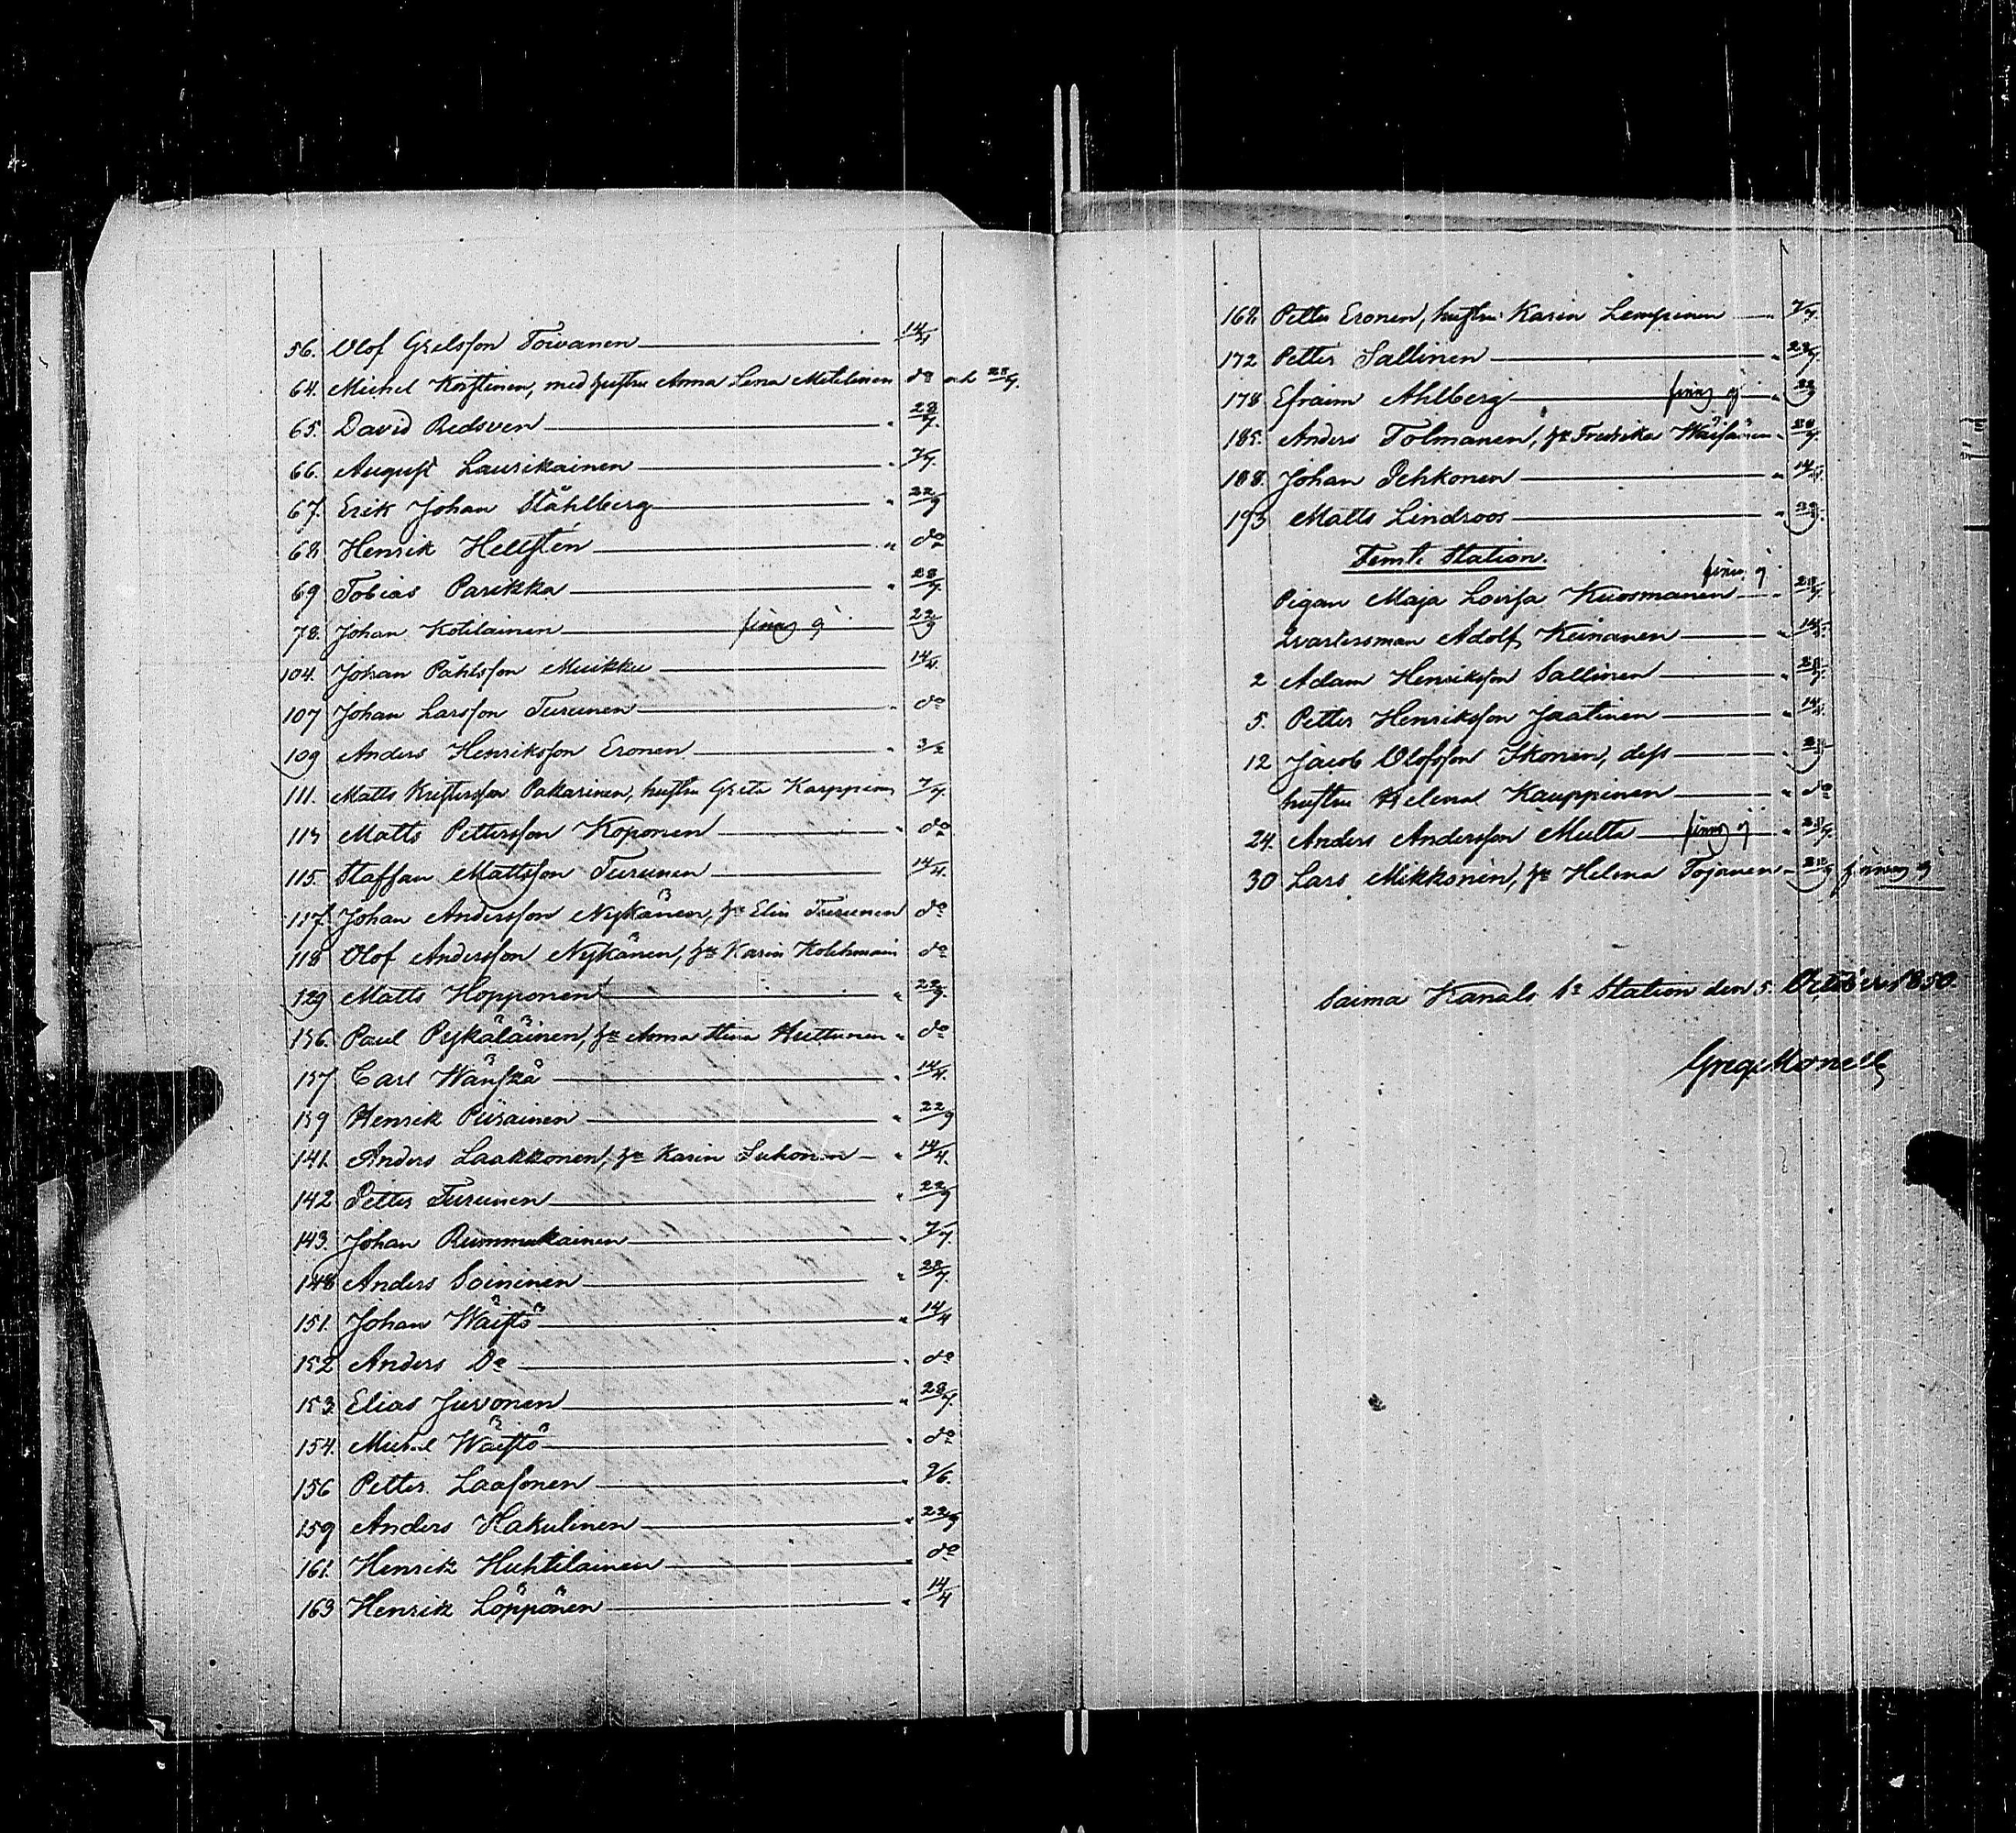 56. Olof Grelsson Toivanen 14/4
64. Michel Korstinen, med hustru Anna Lena Metilinen do och 28/7.
65. David Redsven " 28/7.
66. August Laurikainen " 7/7.
67. Erik Johan Ståhlberg " 22/9
68 Henrik Hellstén " do
69 Tobias Parikka " 28/7.
78. Johan Kotilainen finns ej 22/9
104. Johan Påhlsson Muikku 14/4.
107 Johan Larsson Turunen " do
109 Anders Henriksson Eronen " 3/2
111. Matts Kristersson Pakarinen, hustru Greta Karppinen 7/7.
113 Matts Pettersson Koponen " do
115. Staffan Mattsson Turunen 14/4.
117. Johan Andersson Nykänen, hu Elin Turunen do
118 Olof Andersson Nykänen, hu Karin Kolehmain do
129 Matts Hopponen " 22/9.
136. Paul Pykäläinen, hu Anna Stina Huttunen " do
137 Carl Wänskä " 14/4.
139 Henrik Piirainen " 22/9
141. Anders Laakkonen, hu Karin Suhonen " 14/4.
142 Petter Turunen " 22/9
143. Johan Rummukainen " 7/7.
148 Anders Soininen " 28/7.
151. Johan Wäistö " 14/4
152 Anders Do " do
153. Elias Juvonen " 28/7.
154. Michel Wäistö " do
156 Petter Laasonen " 9/6.
159 Anders Hakulinen " 22/9
161. Henrik Huhtilainen " do
163 Henrik Löppönen " 14/4
168 Petter Eronen, hustru Karin Lempinen " 7/7.
172 Petter Sallinen " 28/7.
178 Efraim Ahlberg finns ej " 22/9
185. Anders Tolmanen, hu Fredrika Wäisänen " 28/7.
188. Johan Pehkonen " 14/4.
193 Matts Lindroos " 22/9.
Femte Station.
Pigan Maja Lovisa Kuosmanen finns ej " 28/7.
Qvartersman Adolf Keinanen " 14/4.
2 Adam Henriksson Sallinen " 28/7.
5. Petter Henriksson Jaatinen " 14/4.
12 Jacob Olofsson Ikonen, dess "
hustru Helena Kauppinen " do
24. Anders Andersson Multa finns ej " 28/7.
30 Lars Mikkonen, hu Helena Tojanen finns ej
Saima Kanals 6e Station den 5. October 1850.